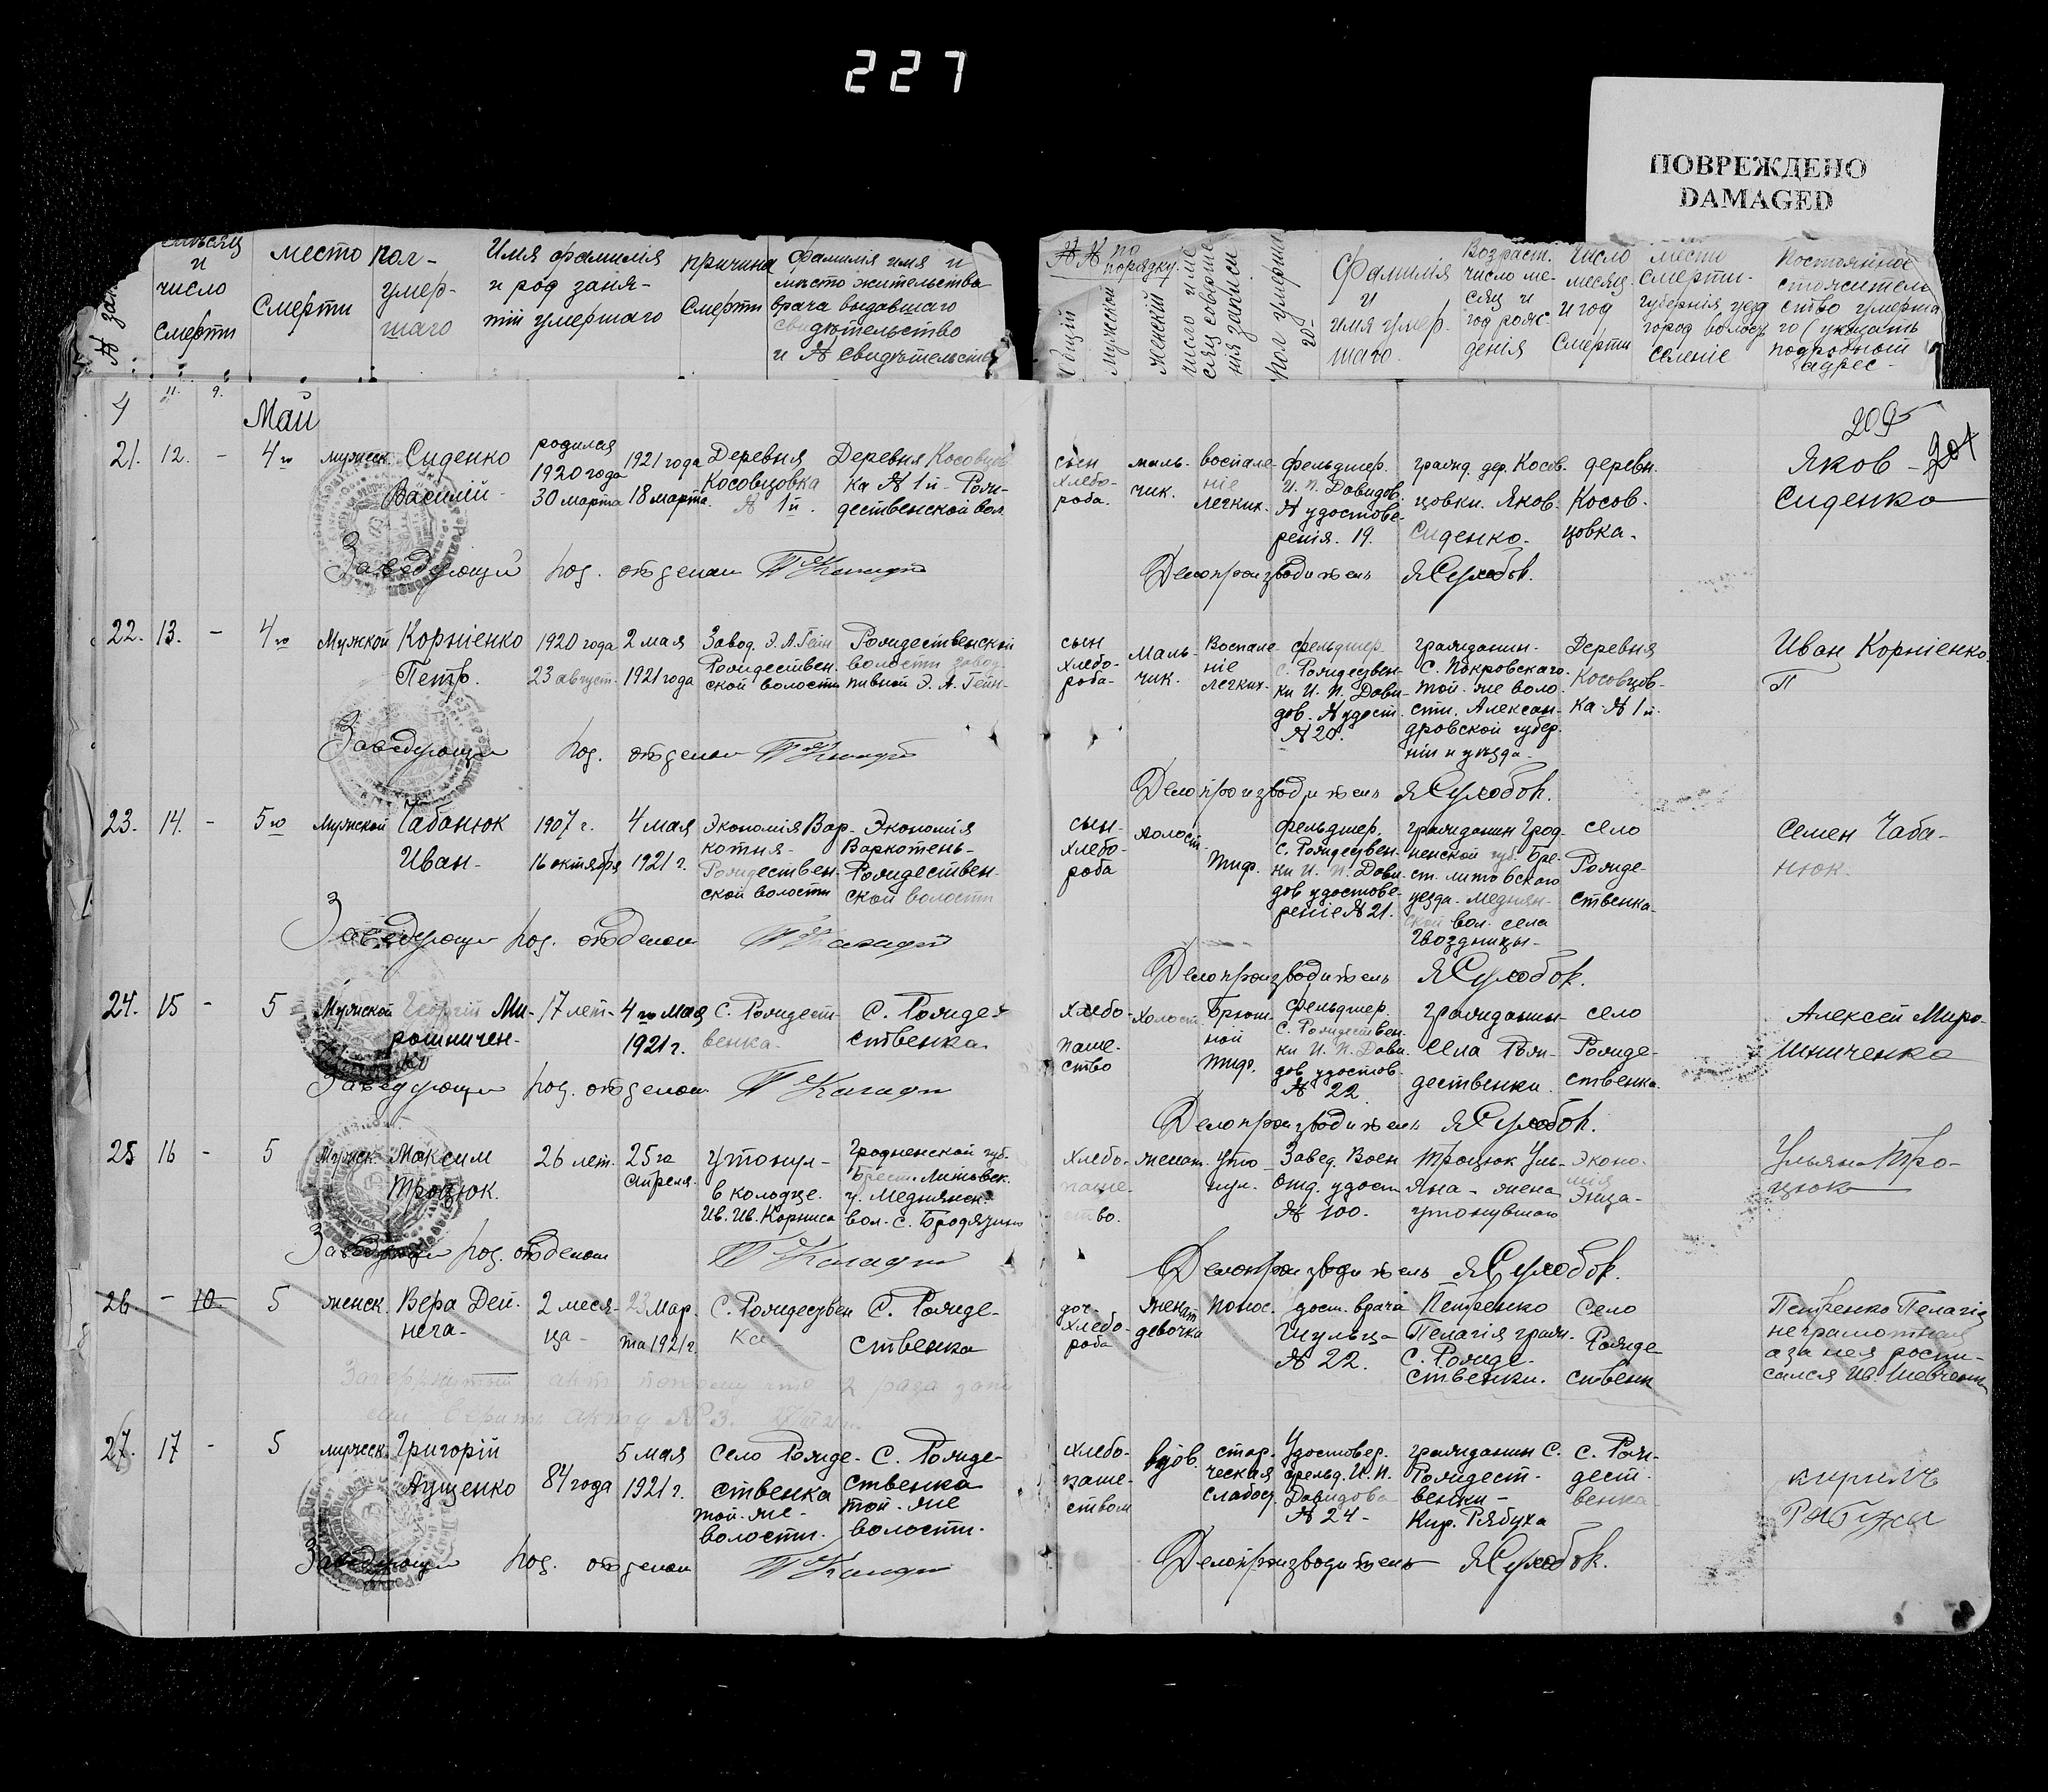 227
ПОВРЕЖДЕНО
DAMAGED
и
число
смерти
место
Смерти
пол
умер-
шаго
Имя фамилія
и род заня-
тій умершаго
причина
Смерти
фамилія имя и
място жительства
врача выдавшаго
свидѣтельство
и № свидѣтельств
№ № по
порядку
Общій
Мужской
Женскій
число и ме
сяц соверше
нія записи
Пол умерша
го
Фамилія
и
имя умер-
шаго.
Возраст.
число ме-
сяц и
год рож-
денія
число
месяц.
и год
Смерти
место
смерти-
губернія уезд
город волость
селеніе
Постоянное
ство умерша
го (указать
подробный
адрес-
4
11.
9.
Май
205
204
21. 12. - 4го
мужеск
Сиденко
Василій-
родился
1920 года
30 марта
1921 года
18 марта.
Деревня
Косовцовка
№ 1й.
Деревня Косовцов
ка № 1й- Рож-
дественской вол
сын
хлебо-
роба-
маль-
чик.
воспале-
ніе
легких.
фельдшер.
И. П. Давидов.
№ удостове-
ренія. 19.
гражд. дер. Косов.
цовки. Яков.
Сиденко.
деревн.
Косов.
цовка-
Яков
Сиденко
Заведующій под. отделом
Делопроизводитель ЯСулобок.
22. 13. - 4го
Мужской
Корніенко
Петр.
1920 года
23 август.
2 мая
1921 года
Завод. Э. А. Гейн
Рождествен.
ской волости
Рождественской
волости завод.
пивной Э. А. Гейн-
сын
хлебо-
роба-
Маль-
чик.
Воспале-
ніе
легких.
фельдшер
с. Рождествен-
ки И. П. Дави-
дов. № удост.
№ 20.
гражданин.
С. Покровскаго
той-же воло
сти. Алексан-
дровской губер
ніи и уезда-
Деревня
Косовцов-
ка-№ 1й.
Иван Корніенко
П
Заведующи под. отделом
Делопроизводитель ЯСулобок.
23. 14. - 5го
Мужской
Чабанюк
Иван-
1907 г.
16 октября
4 мая
1921 г.
Экономія Вар-
котня-
Рождествен-
ской волости
Экономія
Варкотень-
Рождествен-
ской волости
сын-
хлебо-
роба
холост.
тиф.
фельдшер.
с. Рождествен-
ки И. П. Дави-
дов удостове-
реніе № 21.
гражданин Грод-
ненской губ. Бре-
ст. литовскаго
уезда. Меднян-
ской вол. села
Гвоздницы-
село
Рожде-
ственка-
Семен Чаба-
нюк.
Заведующи под. отделом
Делопроизводитель ЯСулобок.
24. 15 - 5
Мужской
Георгій Ми-
рошничен-
ко
17 лет-
4го мая
1921 г.
С. Рождест-
венка-
С. Рожде-
ственка.
Хлебо-
паше-
ство
Холост
Брюш-
ной
тиф.
Фельдшер
с. Рождествен
ки И. П. Дави
дов удостов.
№ 22
гражданин
села Рож-
дественки.
село
Рожде-
ственка.
Алексей Миро-
шниченко
Заведующи под. отделом
Делопроизводитель ЯСулобок.
25 16 - 5
Мужск.
Максим
Троцюк.
26 лет.
25го
апреля.
Утонул-
в колодце.
Ив. Ив. Корниса
Гродненской губ.
Брест. Литовск.
у. Меднянск.
вол. с. Бродятин
Хлебо-
паше-
ство.
женат.
Уто
нул.
Завед. Воен
Отд. удост
№ 100.
Троцюк Уль-
яна - жена
утонувшаго
Эконо-
мія
Энца-
Ульяна Тро-
цюк
Заведующи под. отделом
Делопроизводитель ЯСулобок.
26 - 10 5
женск.
Вера Дей-
нега-
2 меся-
ца-
23 Мар.
та 1921 г.
С. Рождествен
ка
С. Рожде-
ственка
доч-
хлебо-
роба
женат
девочка
понос.
дост. врача
Шульц-
№ 22.
Петренко
Пелагія граж.
С. Рожде-
ственки.
Село
Рожде
ственк
Петренко Пелагія
неграмотная
а за нея роспи-
сался Ив. Шевченк
Зачеркнутый акт потому что 2 раза запи
27. 17 - 5
мужеск
Григорій
Ащенко
84 года
5 мая
1921 г.
Село Рожде-
ственка
той-же-
волости.
С. Рожде-
ственка
той-же
волости.
хлебо-
паше-
ством
вдов.
стар-
ческая
слабост.
Удостовер.
фельд. И. П.
Давидова
№ 24-
гражданин С.
Рождест-
венки-
Кир. Рябуха
С. Рож-
дест-
венка
Кирилъ
Рябуха
Заведующи под. отделом
Делопроизводитель ЯСулобок.